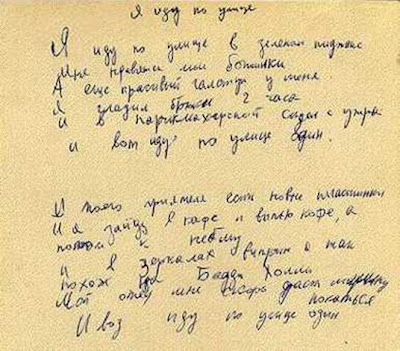 Я иду по улице
Я иду по улице в зеленом пиджаке
Мне нравятся мои ботинки
А еще красивый галстук у меня.
Я гладил брюки 2 часа
И в парикмахерской сидел с утра
и вот иду по улице один.
У моего приятеля есть новые пластинки
И я зайду в кафе и выпью кофе, а
потом к нему
и в зеркалах витрин я так
похож на Бадди Холли
Мой отец мне скоро даст машину
покататься
И воз иду по улице один